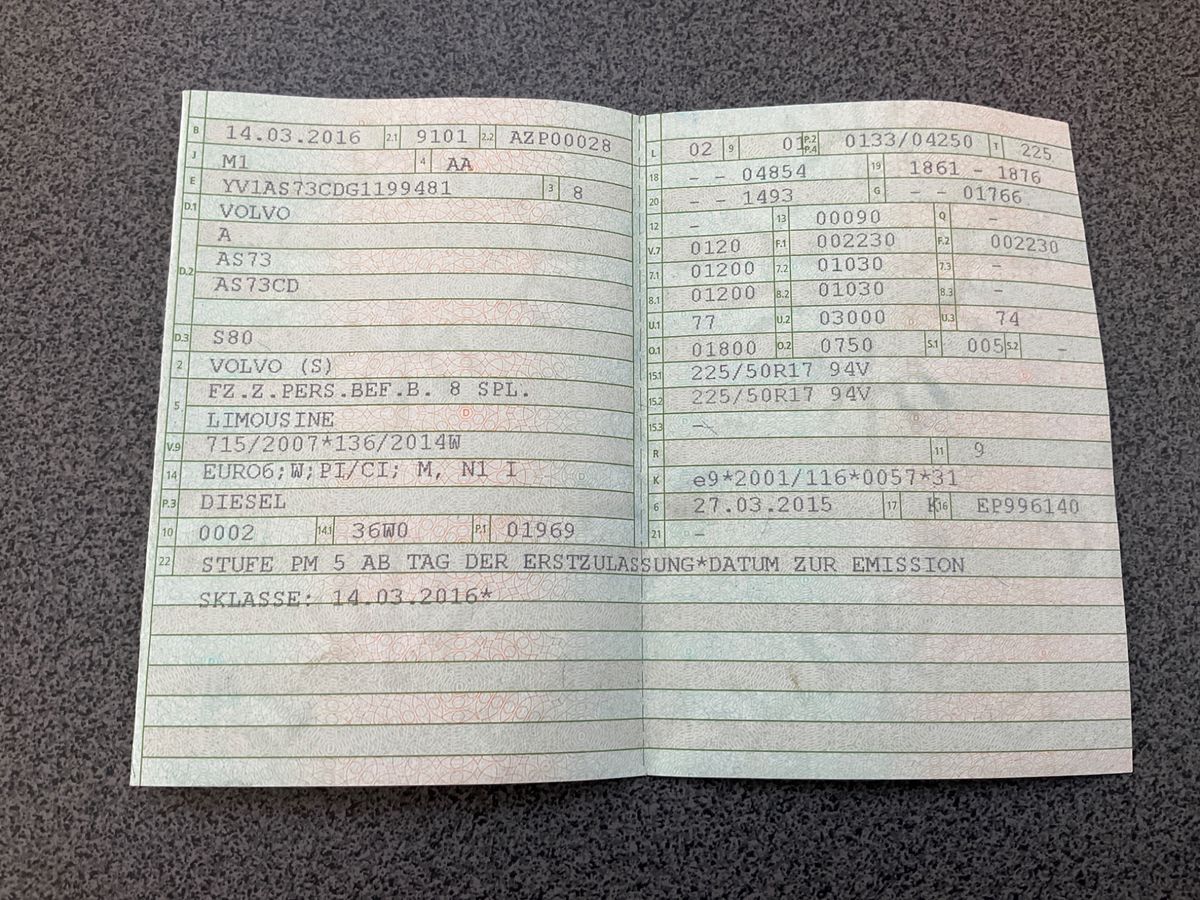 B 14.03.2016 2.1 9101 2.2 AZP00028
J M1 4 AA
E YV1AS73CDG1199481 3 8
D.1 VOLVO
A
D.2 AS73
AS73CD
D.3 S80
2 VOLVO (S)
5 FZ.Z.PERS.BEF.B. 8 SPL.
LIMOUSINE
V.9 715/2007*136/2014W
14 EURO6;W;PI/CI; M, N1 I
P.3 DIESEL
10 0002 14.1 36W0 P.1 01969
L 02 9 01 P.2 P.4 0133/04250 T 225
18 - - 04854 19 1861 - 1876
20 - - 1493 G - - 01766
12 - 13 00090 Q -
V.7 0120 F.1 002230 F.2 002230
7.1 01200 7.2 01030 7.3 -
8.1 01200 8.2 01030 8.3 -
U.1 77 U.2 03000 U.3 74
O.1 01800 O.2 0750 S.1 005 S.2 -
15.1 225/50R17 94V
15.2 225/50R17 94V
15.3 -
R 11 9
K e9*2001/116*0057*31
6 27.03.2015 17 K 16 EP996140
21 -
22 STUFE PM 5 AB TAG DER ERSTZULASSUNG*DATUM ZUR EMISSION
SKLASSE: 14.03.2016*